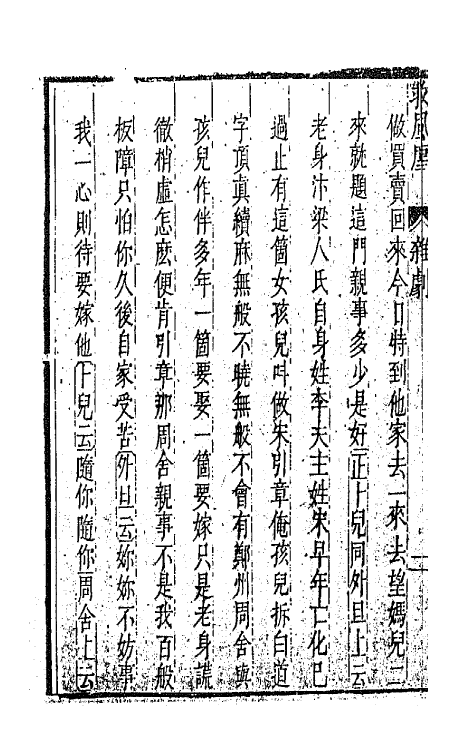 救風塵　雜劇　二
做買賣回來今日特到他家去一來去望媽兒二
來就題這門親事多少是好正卜兒同外旦上云
老身汴梁人氏自身姓李夫主姓宋早年亡化已
過止有這箇女孩兒叫做宋引章俺孩兒拆白道
字頂真續麻無般不曉無般不會有鄭州周舍與
孩兒作伴多年一箇要娶一箇要嫁只是老身謊
徹梢虛怎麼便肯引章那周舍親事不是我百般
板障只怕你久後自家受苦外旦云妳妳不妨事
我一心則待要嫁他卜兒云隨你隨你周舍上云